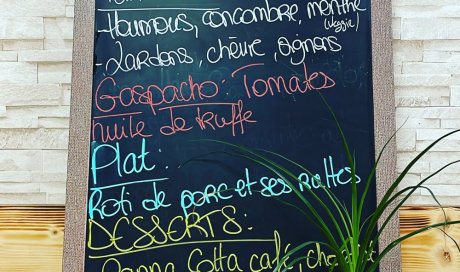 - Houmous, concombre, menthe
(veggie)
- Lardons, chèvre, oignons
Gaspacho: Tomates
huile de truffe
Plat:
Roti de porc et ses rattes
DESSERTS:
Panna Cotta café,